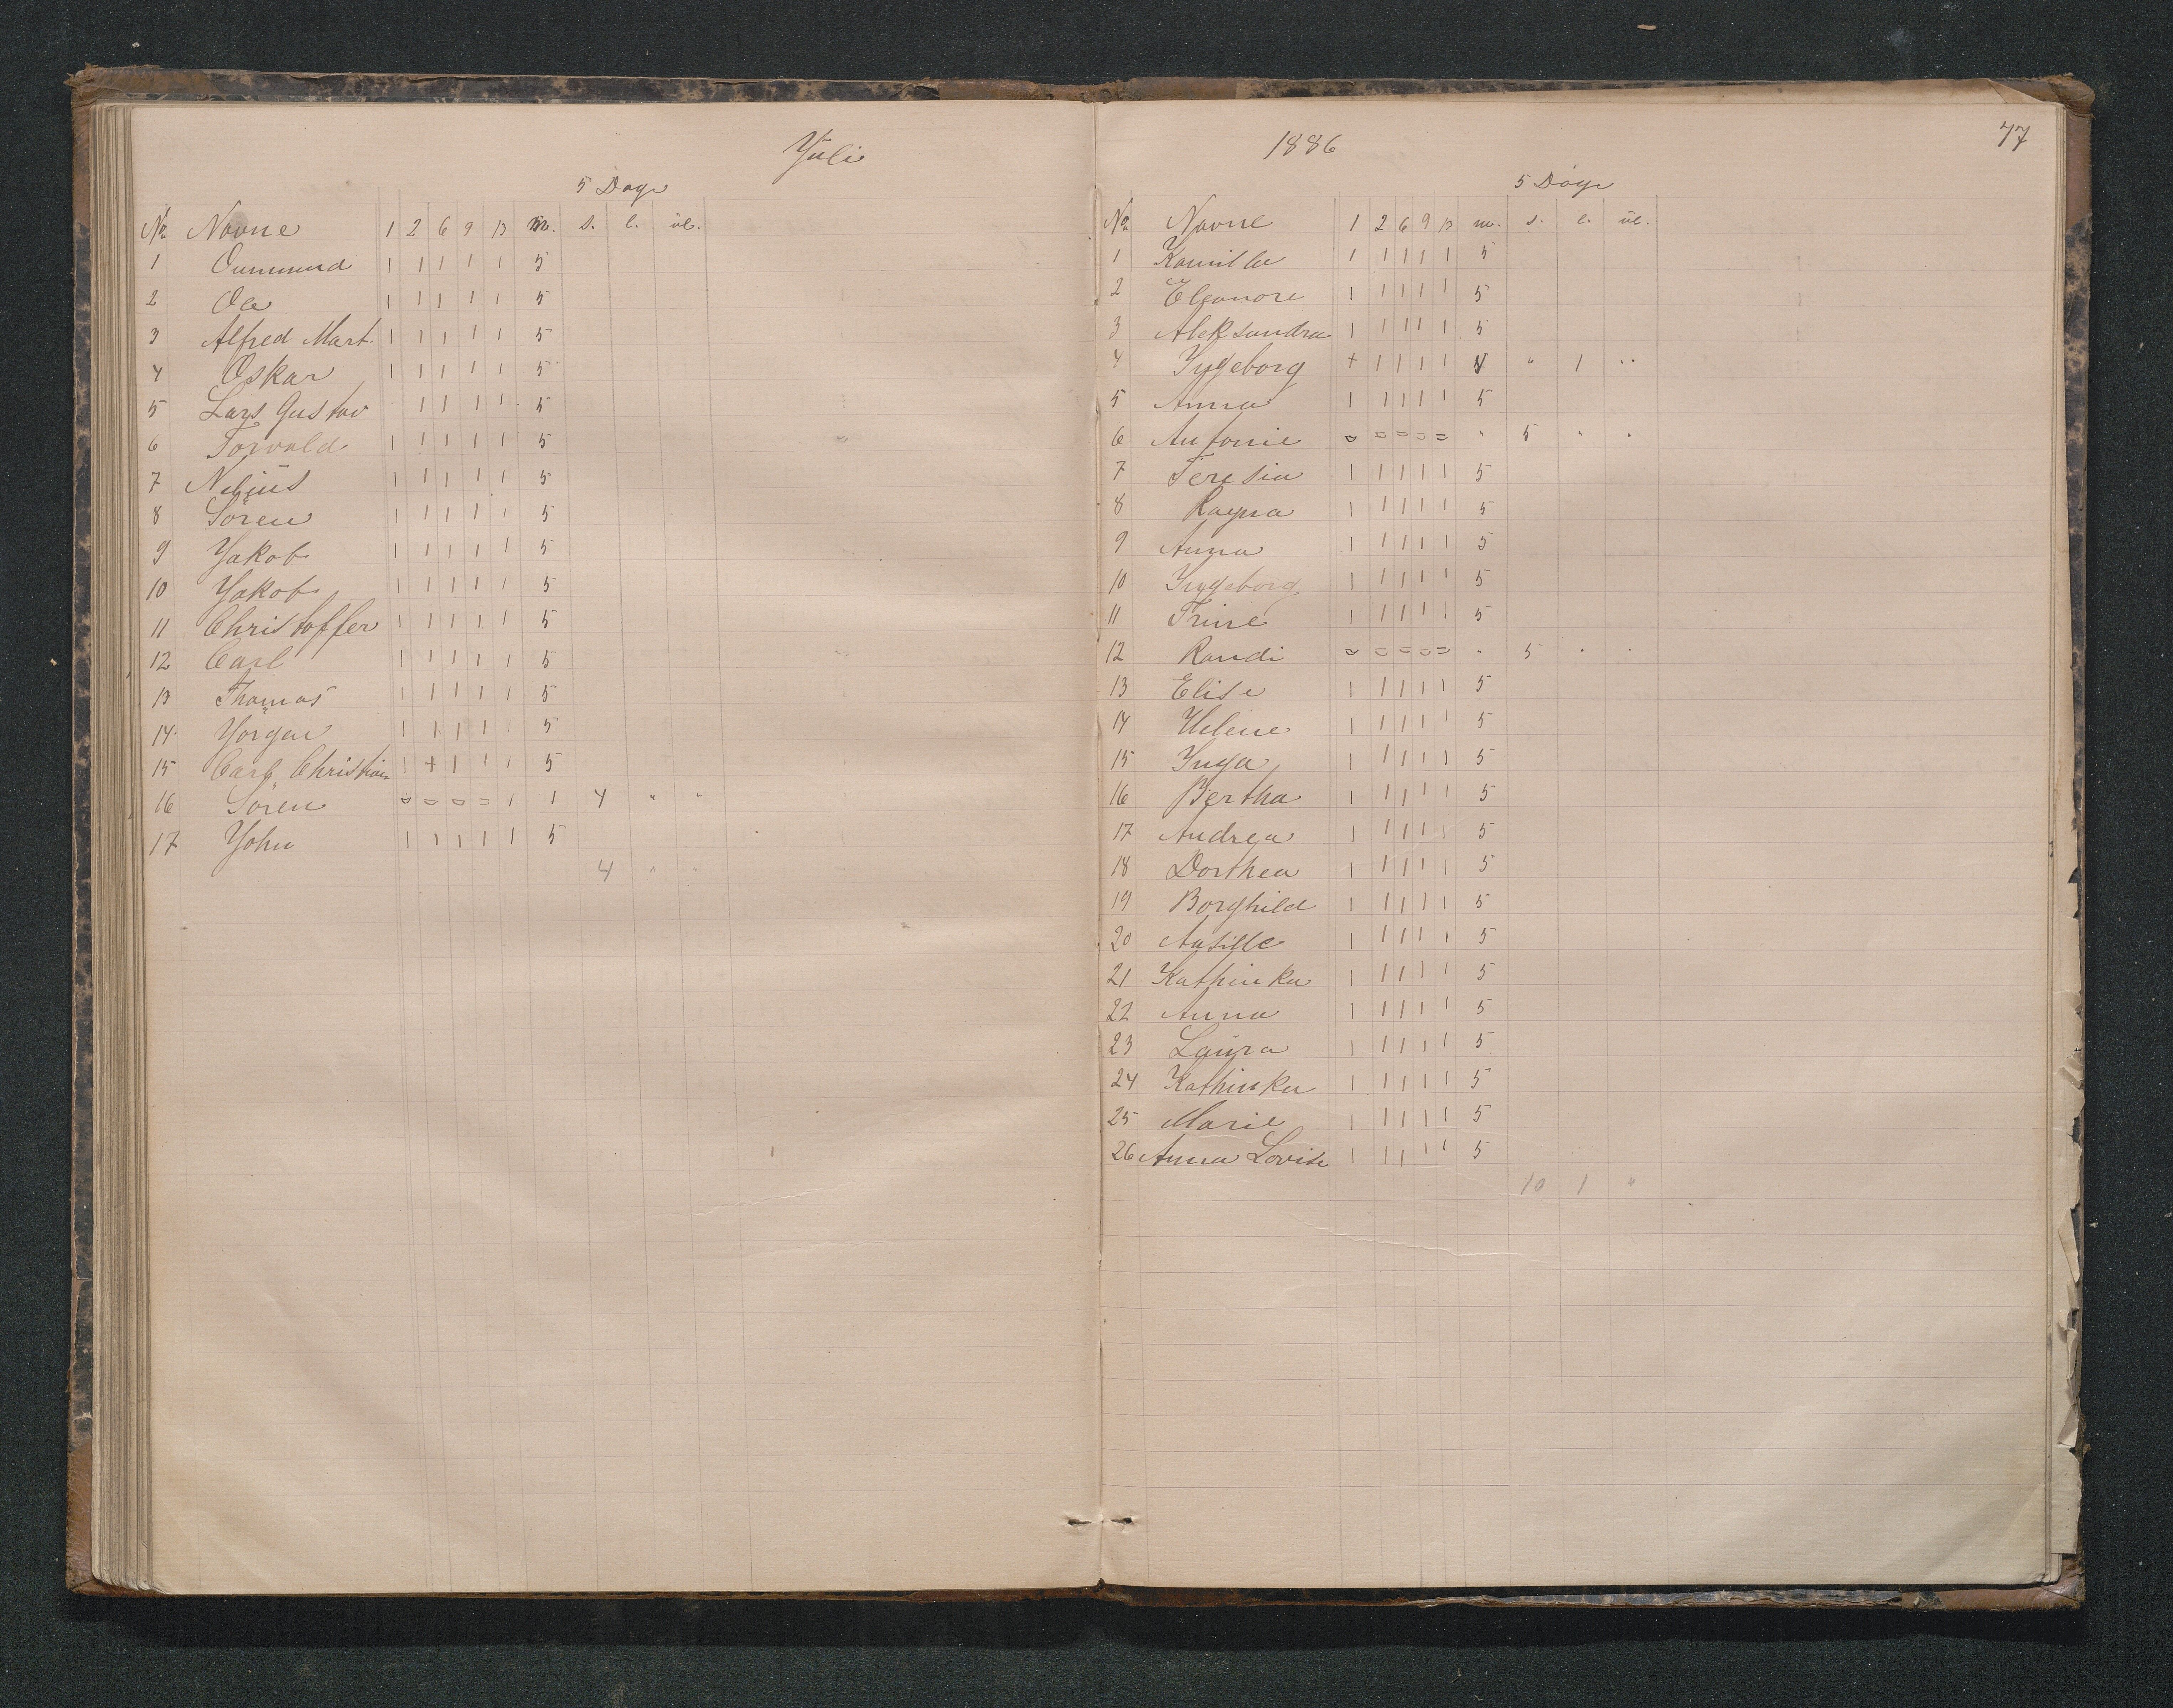 Juli
5 Dage
No Navne 1 2 6 9 13 m. s. l. ul.
1 Ommund 1 1 1 1 1 5
2 Ole 1 1 1 1 1 5
3 Alfred Mart. 1 1 1 1 1 5
4 Oskar 1 1 1 1 1 5
5 Lars Gustav 1 1 1 1 5
6 Torvald 1 1 1 1 1 5
7 Nilius 1 1 1 1 1 5
8 Sören 1 1 1 1 1 5
9 Jakob 1 1 1 1 1 5
10 Jakob 1 1 1 1 1 5
11 Christoffer 1 1 1 1 1 5
12 Carl 1 1 1 1 1 5
13 Thomas 1 1 1 1 1 5
14 Jörgen 1 1 1 1 1 5
15 Carl Christian 1 + 1 1 1 5
16 Sören = = = = 1 1 4 " "
17 John 1 1 1 1 1 5
4 " "
1886
77
5 Dage
No Navne 1 2 6 9 13 m. s. l. ul.
1 Kamilla 1 1 1 1 1 5
2 Eleonore 1 1 1 1 1 5
3 Aleksandra 1 1 1 1 1 5
4 Ingeborg + 1 1 1 1 4 " 1 "
5 Anna 1 1 1 1 1 5
6 Antonie = = = = = " 5 " "
7 Teresia 1 1 1 1 1 5
8 Ragna 1 1 1 1 1 5
9 Anna 1 1 1 1 1 5
10 Ingeborg 1 1 1 1 1 5
11 Trine 1 1 1 1 1 5
12 Randi = = = = = " 5 " "
13 Elise 1 1 1 1 1 5
14 Helene 1 1 1 1 1 5
15 Inga 1 1 1 1 1 5
16 Bertha 1 1 1 1 1 5
17 Andrea 1 1 1 1 1 5
18 Dorthea 1 1 1 1 1 5
19 Borghild 1 1 1 1 1 5
20 1 1 1 1 1 5
21 Kathinka 1 1 1 1 1 5
22 Anna 1 1 1 1 1 5
23 Laura 1 1 1 1 1 5
24 Kathinka 1 1 1 1 1 5
25 Marie 1 1 1 1 1 5
26 Anna Lovise 1 1 1 1 1 5
10 1 "